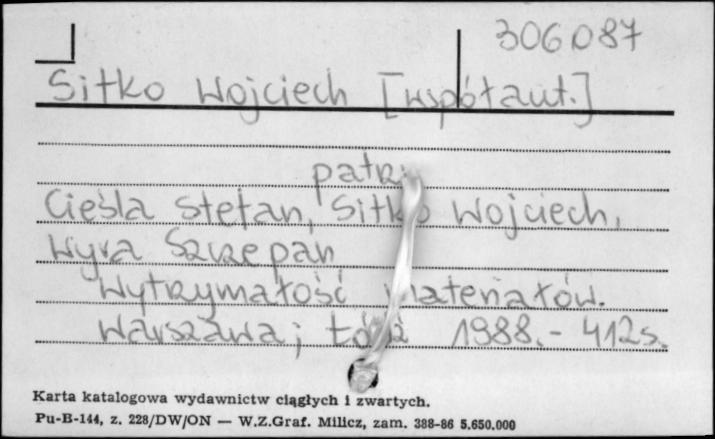 306087
Sitko Wojciech [współaut.]
patrz
Cieśla Stefan, Sitko Wojciech,
Wyra Szczepan
Wytrzymałość materiałów.
Warszawa; Łódź 1988.- 412s.
Karta katalogowa wydawnictw ciągłych i zwartych.
Pu-B-144, z. 228/DW/ON — W.Z.Graf. Milicz, zam. 388-86 5.650.000